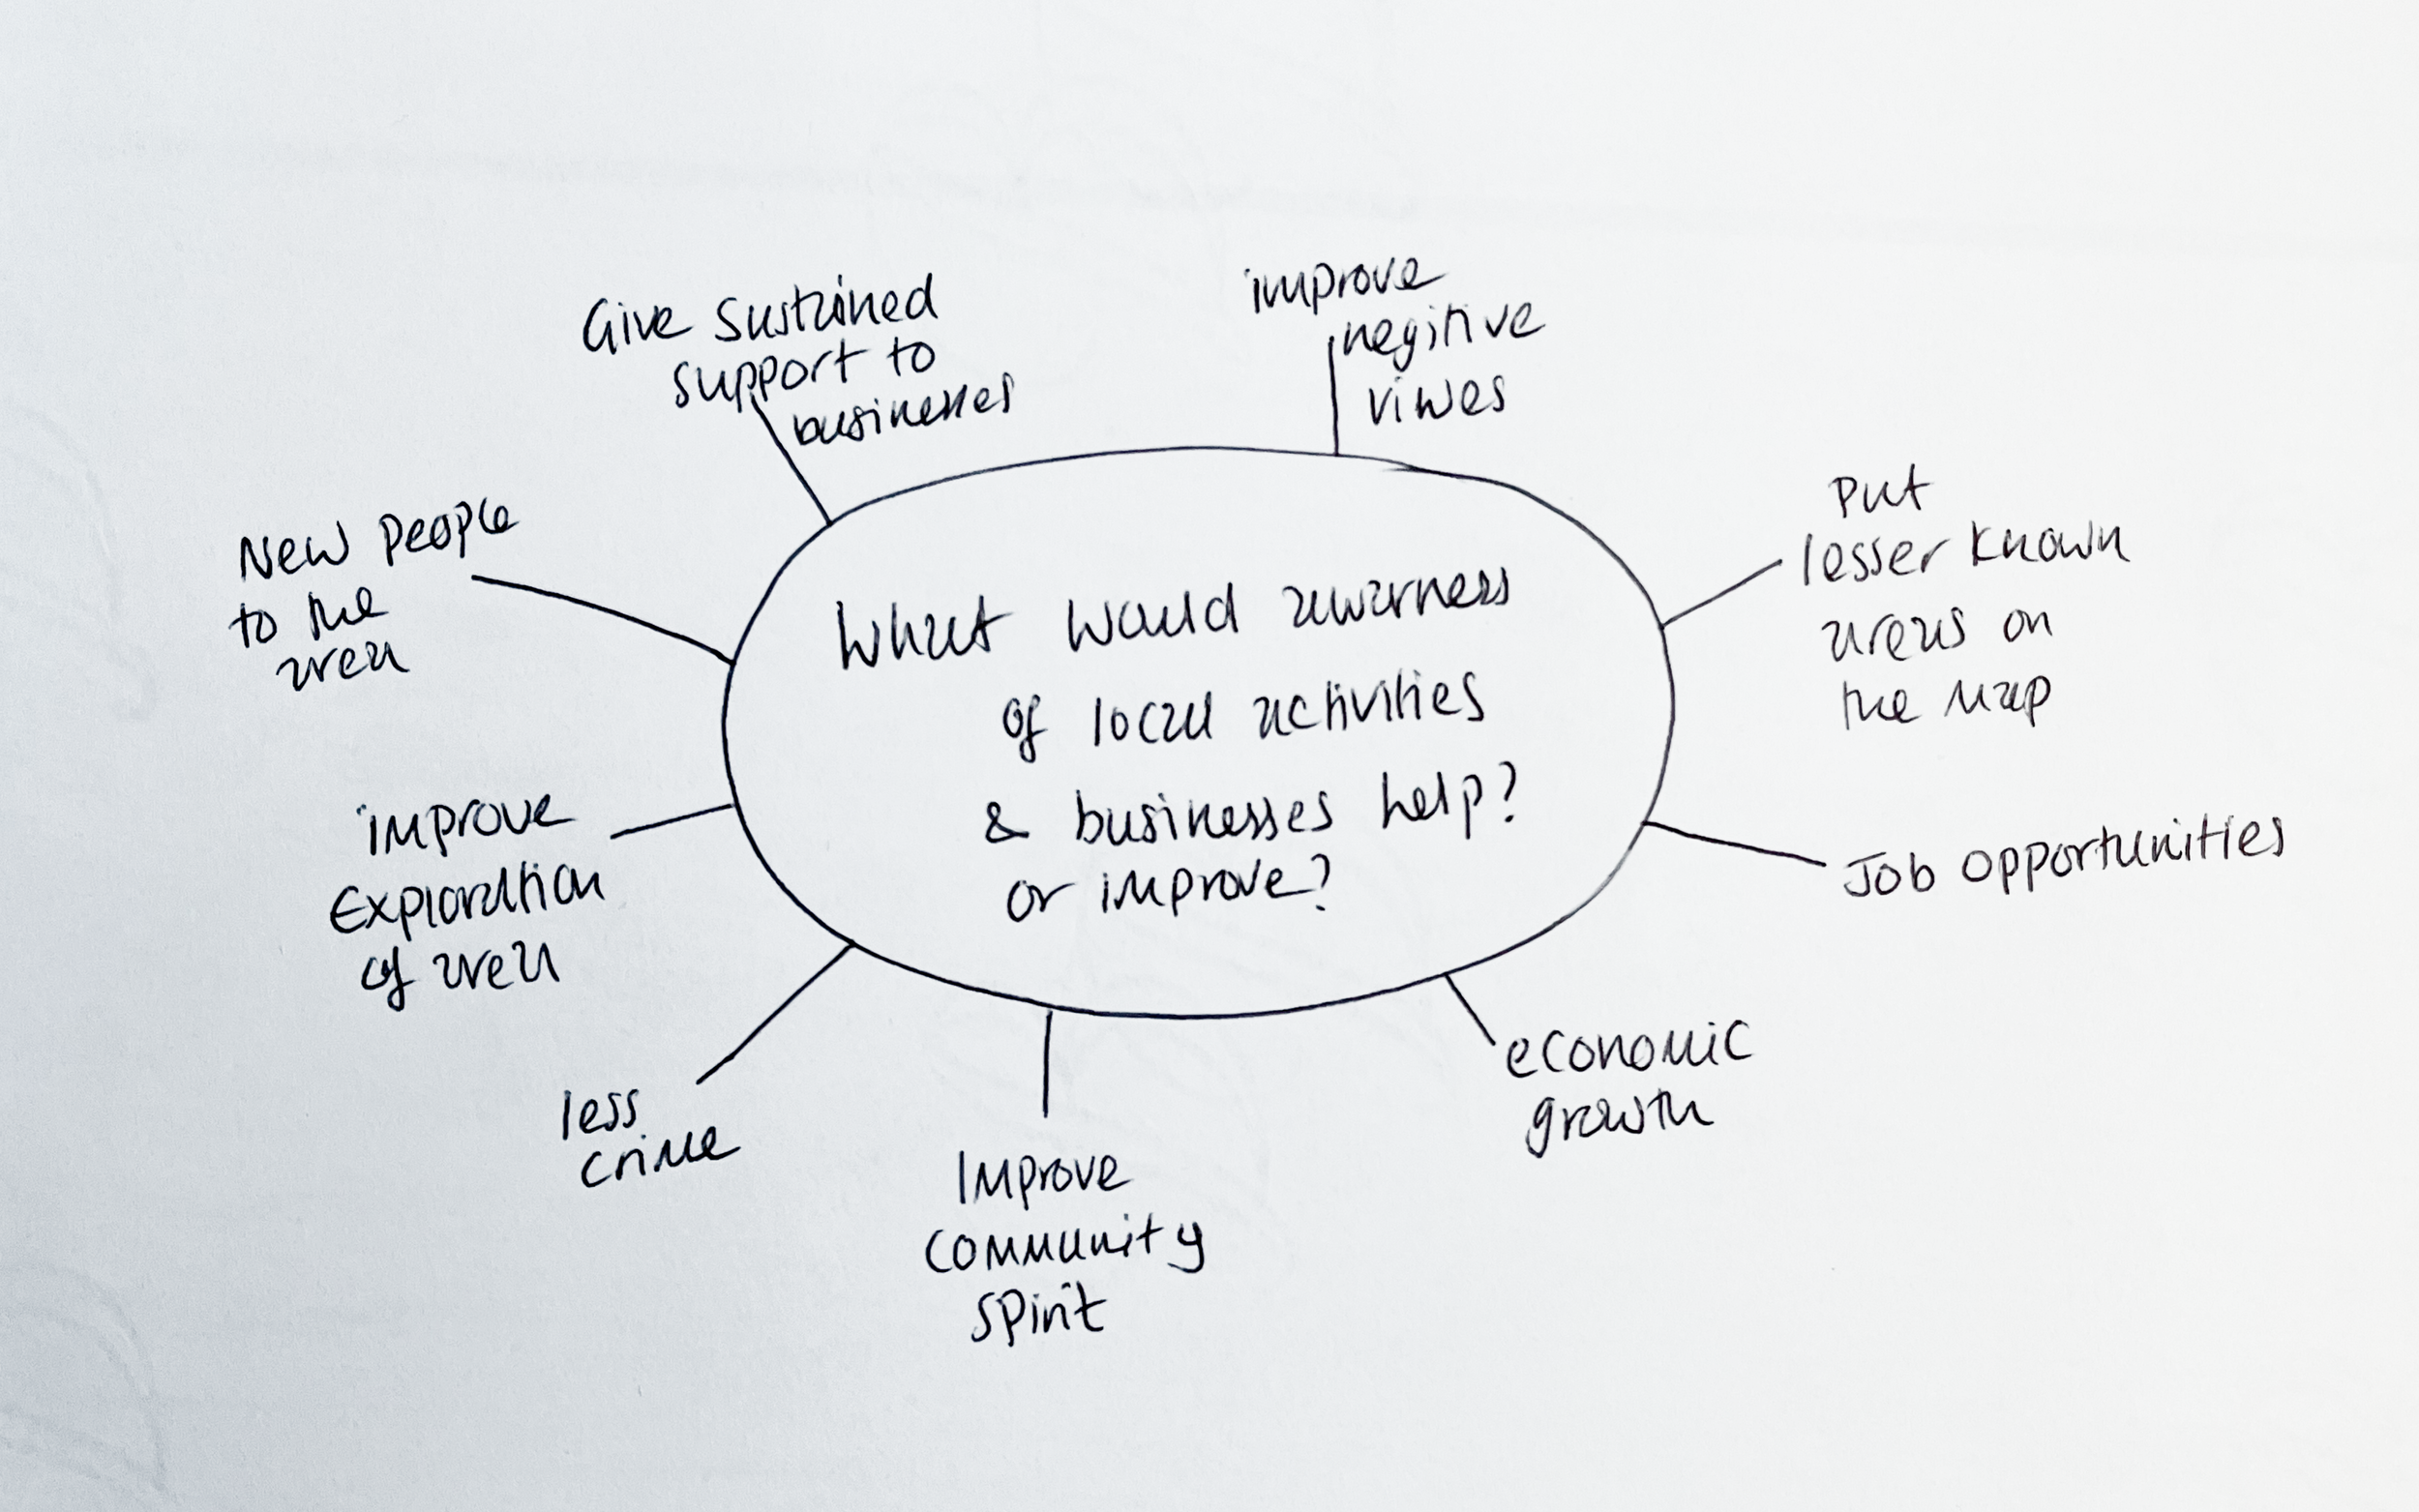 Give sustained
support to
businesses
improve
negitive
viwes
Put
lesser known
areas on
the map
Job opportunities
economic
growth
Improve
community
spirit
less
crime
improve
Exploration
of area
New people
to the
area
What would awarness
of local activities
& businesses help?
or improve?